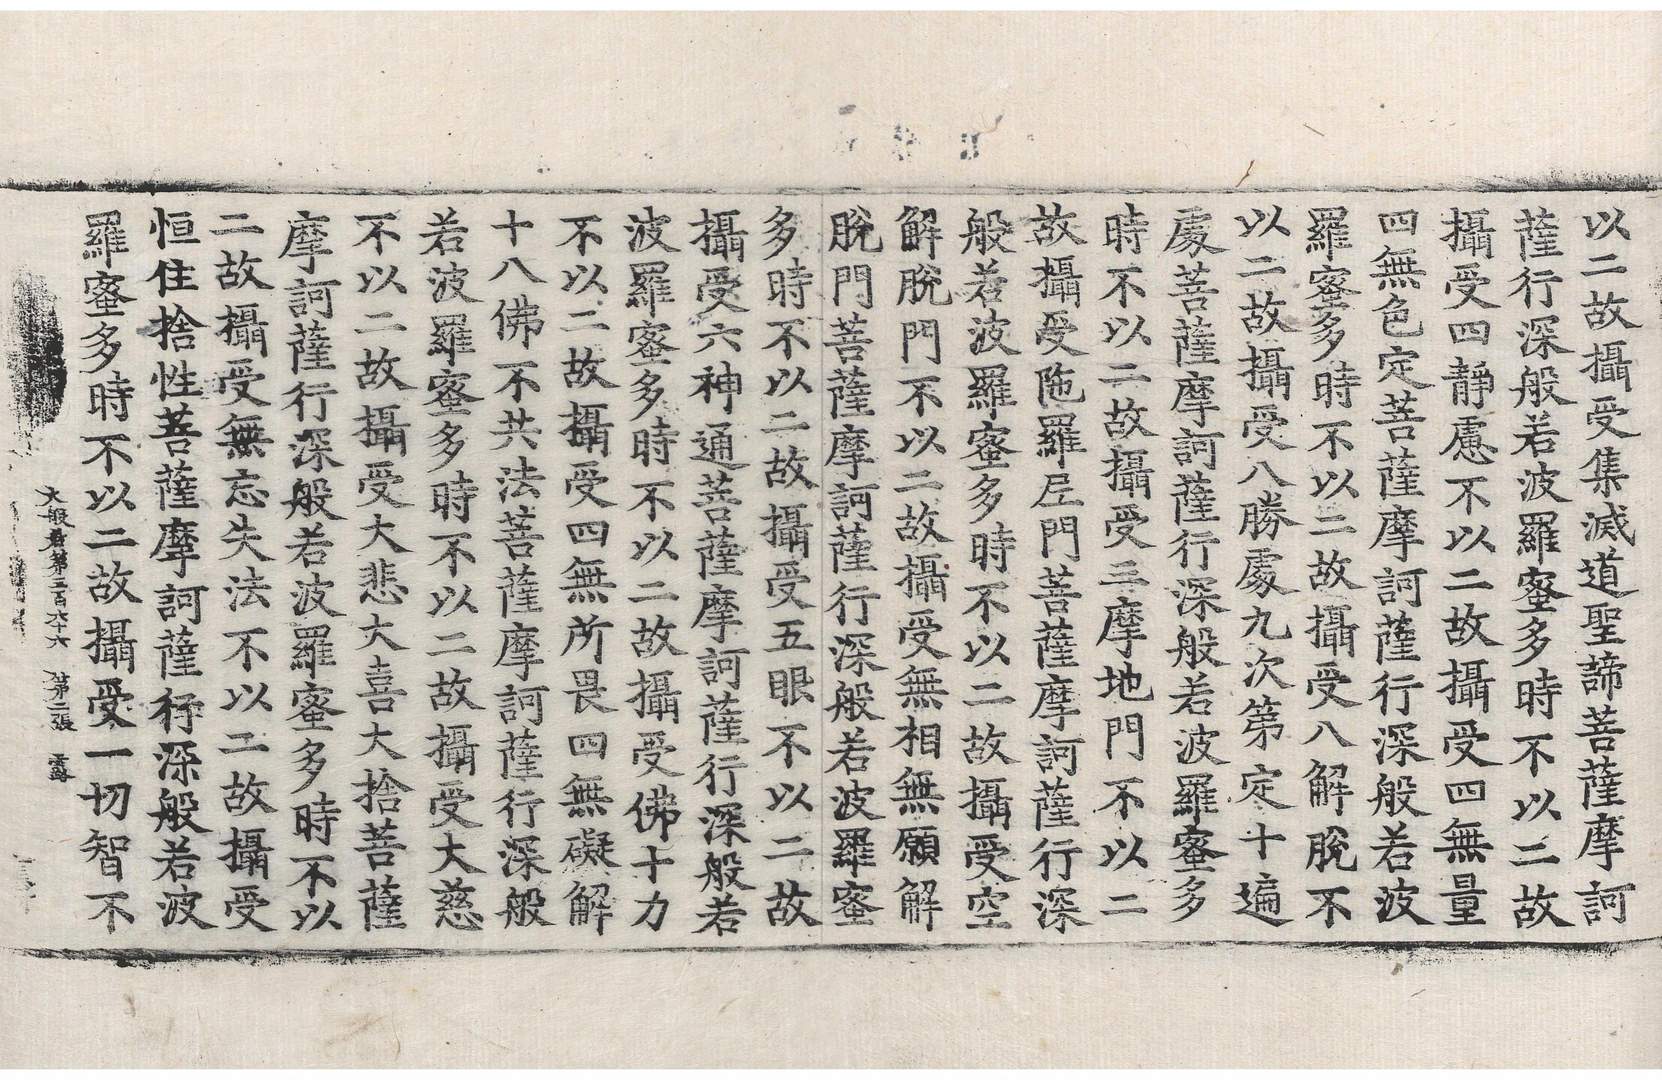 以二故攝受集滅道聖諦菩薩摩訶
薩行深般若波羅蜜多時不以二故
攝受四靜慮不以二故攝受四無量
四無色定菩薩摩訶薩行深般若波
羅蜜多時不以二故攝受八解脫不
以二故攝受八勝處九次第定十遍
處菩薩摩訶薩行深般若波羅蜜多
時不以二故攝受三摩地門不以二
故攝受陁羅尼門菩薩摩訶薩行深
般若波羅蜜多時不以二故攝受空
解脫門不以二故攝受無相無願解
脫門菩薩摩訶薩行深般若波羅蜜
多時不以二故攝受五眼不以二故
攝受六神通菩薩摩訶薩行深般若
波羅蜜多時不以二故攝受佛十力
不以二故攝受四無所畏四無礙解
十八佛不共法菩薩摩訶薩行深般
若波羅蜜多時不以二故攝受大慈
不以二故攝受大悲大喜大捨菩薩
摩訶薩行深般若波羅蜜多時不以
二故攝受無忘失法不以二故攝受
恒住捨性菩薩摩訶薩行深般若波
羅蜜多時不以二故攝受一切智不
大般若第三百六十六 第二張 露